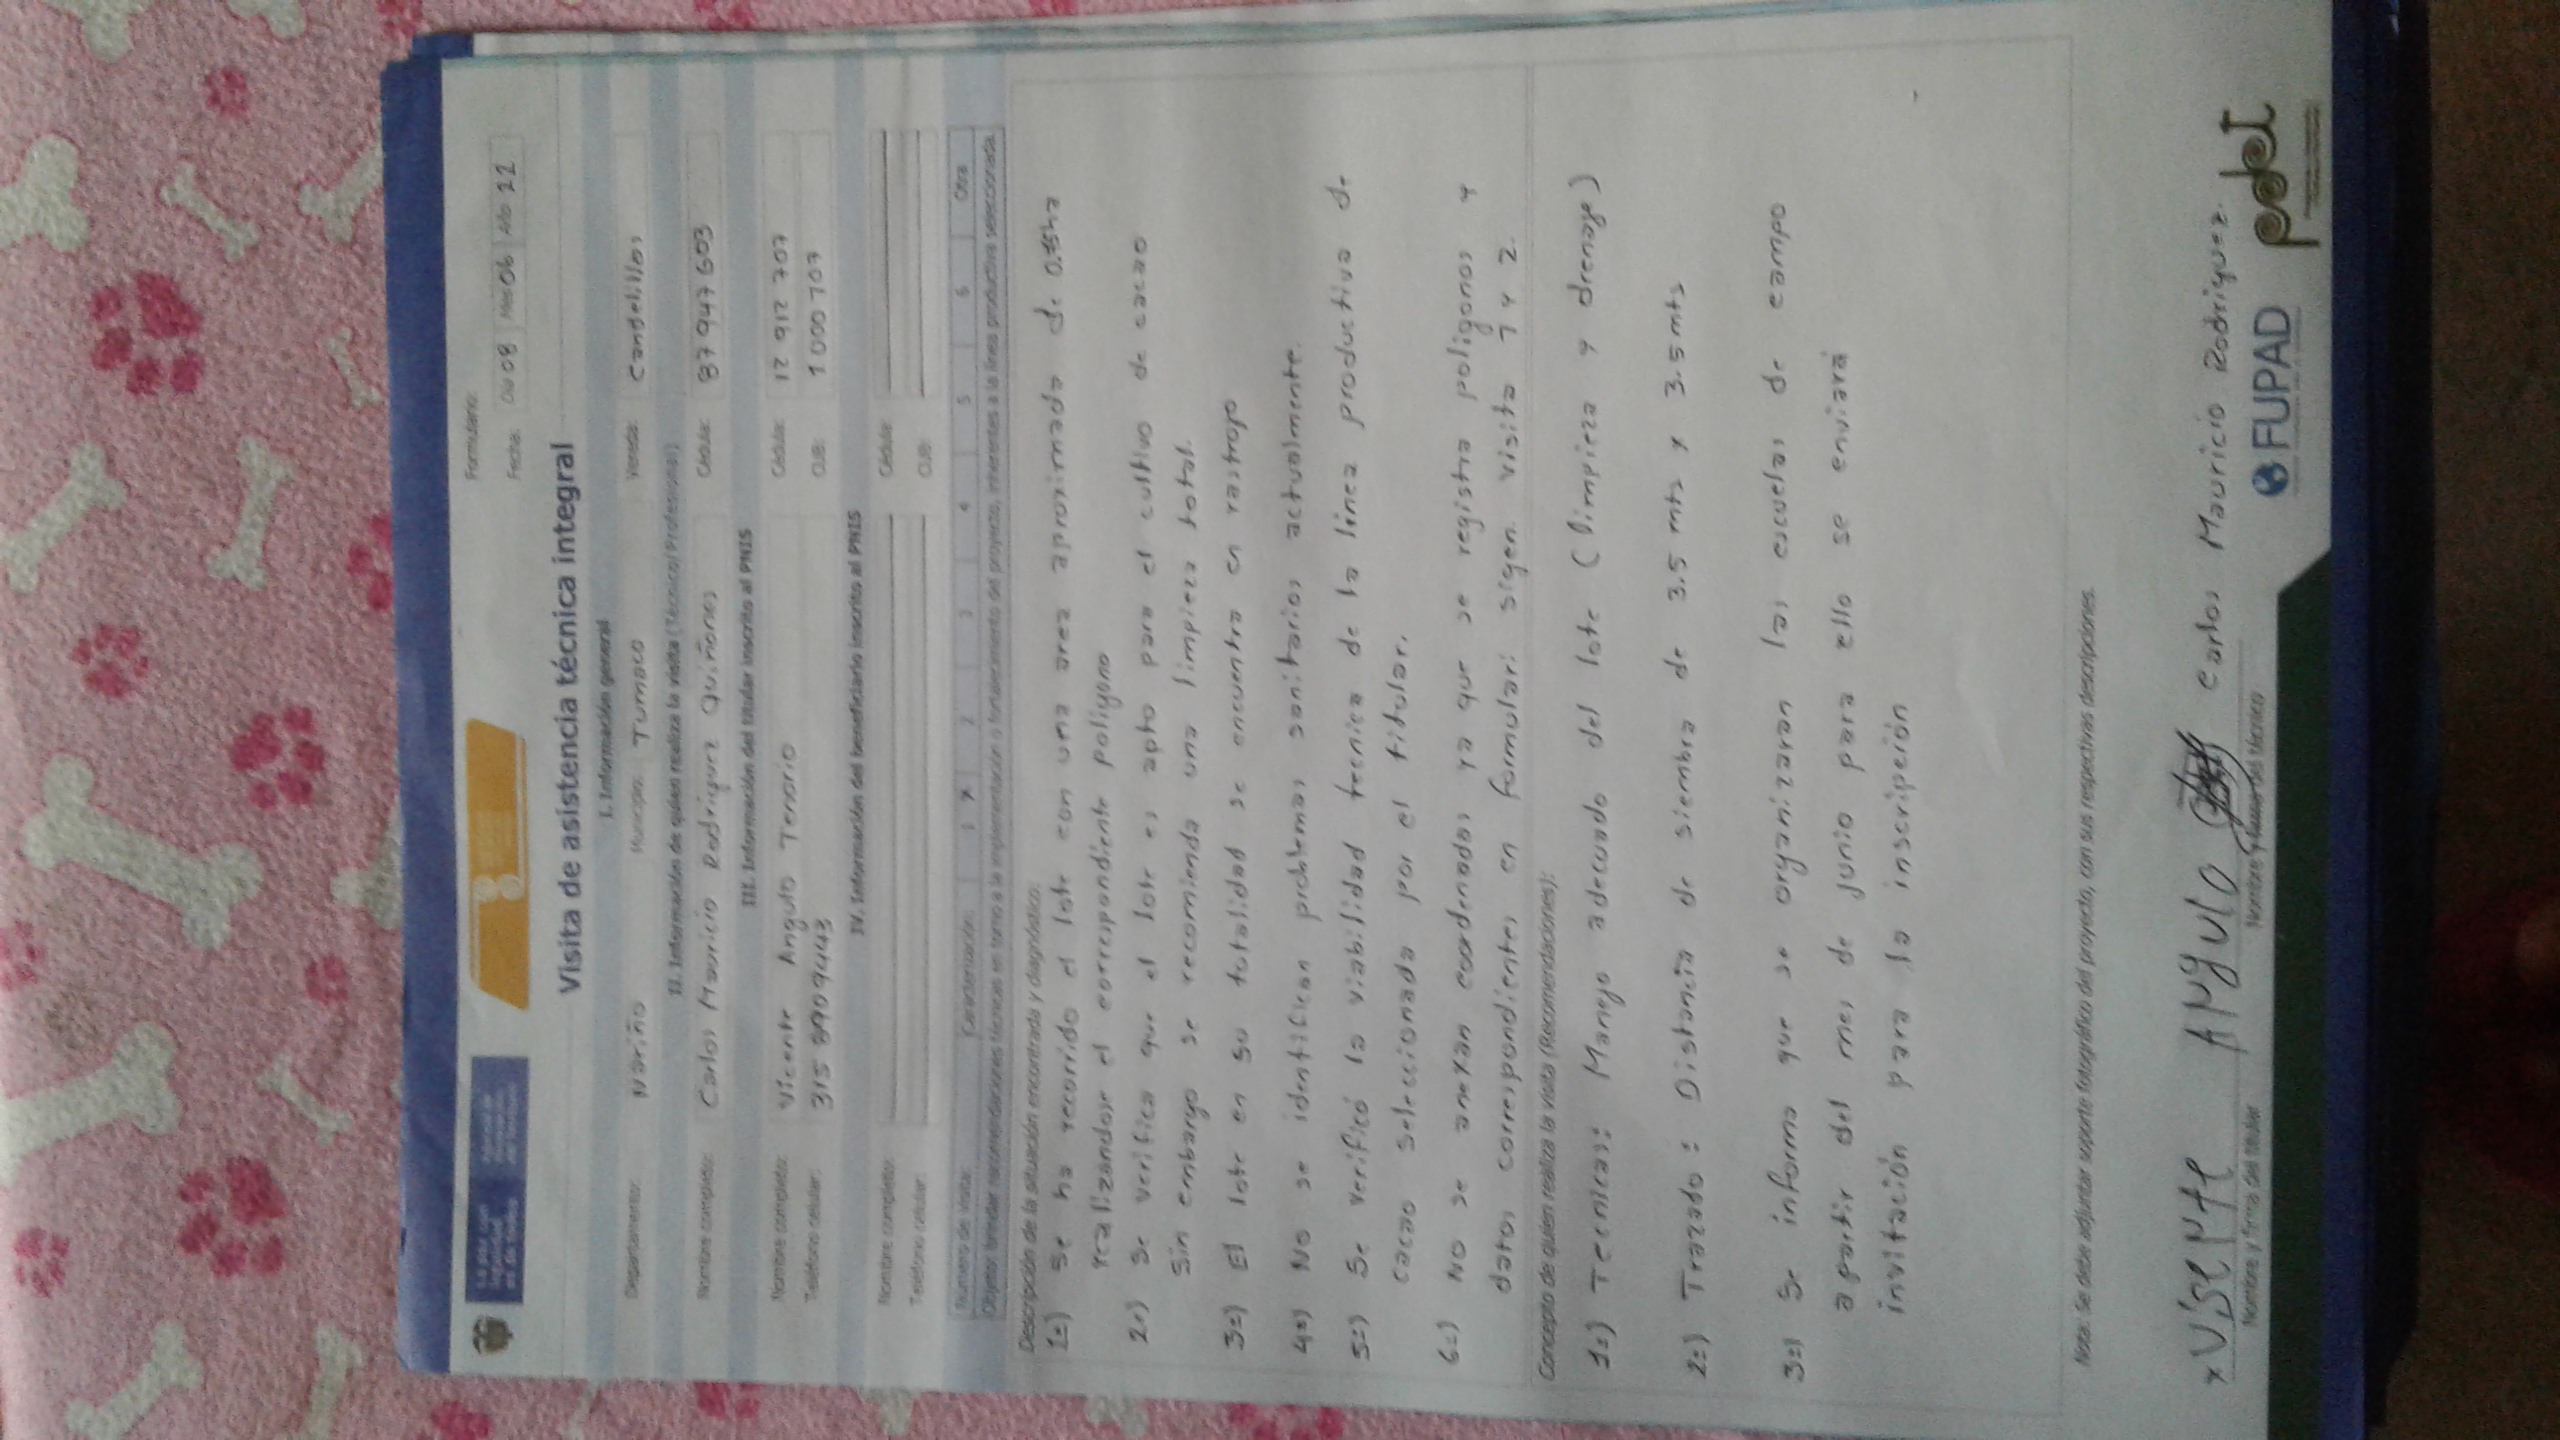 Formulario:
Fecha: Día 08 Mes 06 Año 22
Visita de asistencia técnica integral
I. Información general
Departamento: Nariño Municipio: Tumaco Vereda: Candelillas
II. Información de quien realiza la visita (Técnico/Profesional)
Nombre completo: Carlos Mauricio Rodriguez Quiñones Cédula: 87 947 603
III. Información del titular inscrito al PNIS
Nombre completo: Vicente Angulo Tenorio Cédula: 12 912 707
Teléfono celular: 315 8909443 CUB: 1000707
IV. Información del beneficiario inscrito al PNIS
Nombre completo: Cédula:
Teléfono celular: CUB:
Número de visita: Caracterización: 1 X 2 3 4 5 6 Otra
Objeto: brindar recomendaciones técnicas en torno a la implementación o fortalecimiento del proyecto, inherentes a la línea productiva seleccionada.
Descripción de la situación encontrada y diagnóstico:
1=) Se ha recorrido el lote con una area aproximada de
realizandose el correspondiente poligono
2=) Se verifica que el lote es apto para el cultivo de cacao
Sin embargo se recomienda una limpieza total.
3=) El lote en su totalidad se encuentra en rastrojo
4=) No se identifican problemas sanitarios actualmente.
5=) Se verificó la viabilidad tecnica de la linea productiva de
cacao seleccionada por el titular.
6=) No se anexan coordenadas ya que se registra poligonos y
datos correspondientes en formulari sigen visita 1 y 2.
Concepto de quien realiza la visita (Recomendaciones):
1=) Tecnicas: Manejo adecuado del lote (limpieza y drenaje)
2=) Trazado: Distancia de siembra de 3.5 mts x 3.5 mts
3=) Se informa que se organizaran las escuelas de campo
apartir del mes de junio para ello se enviará
invitación para la inscripción
Nota: Se debe adjuntar soporte fotográfico del proyecto, con sus respectivas descripciones.
x Visente Angulo Carlos Mauricio Rodriguez.
Nombre y firma del titular Nombre y firma del técnico
FUPAD pdet